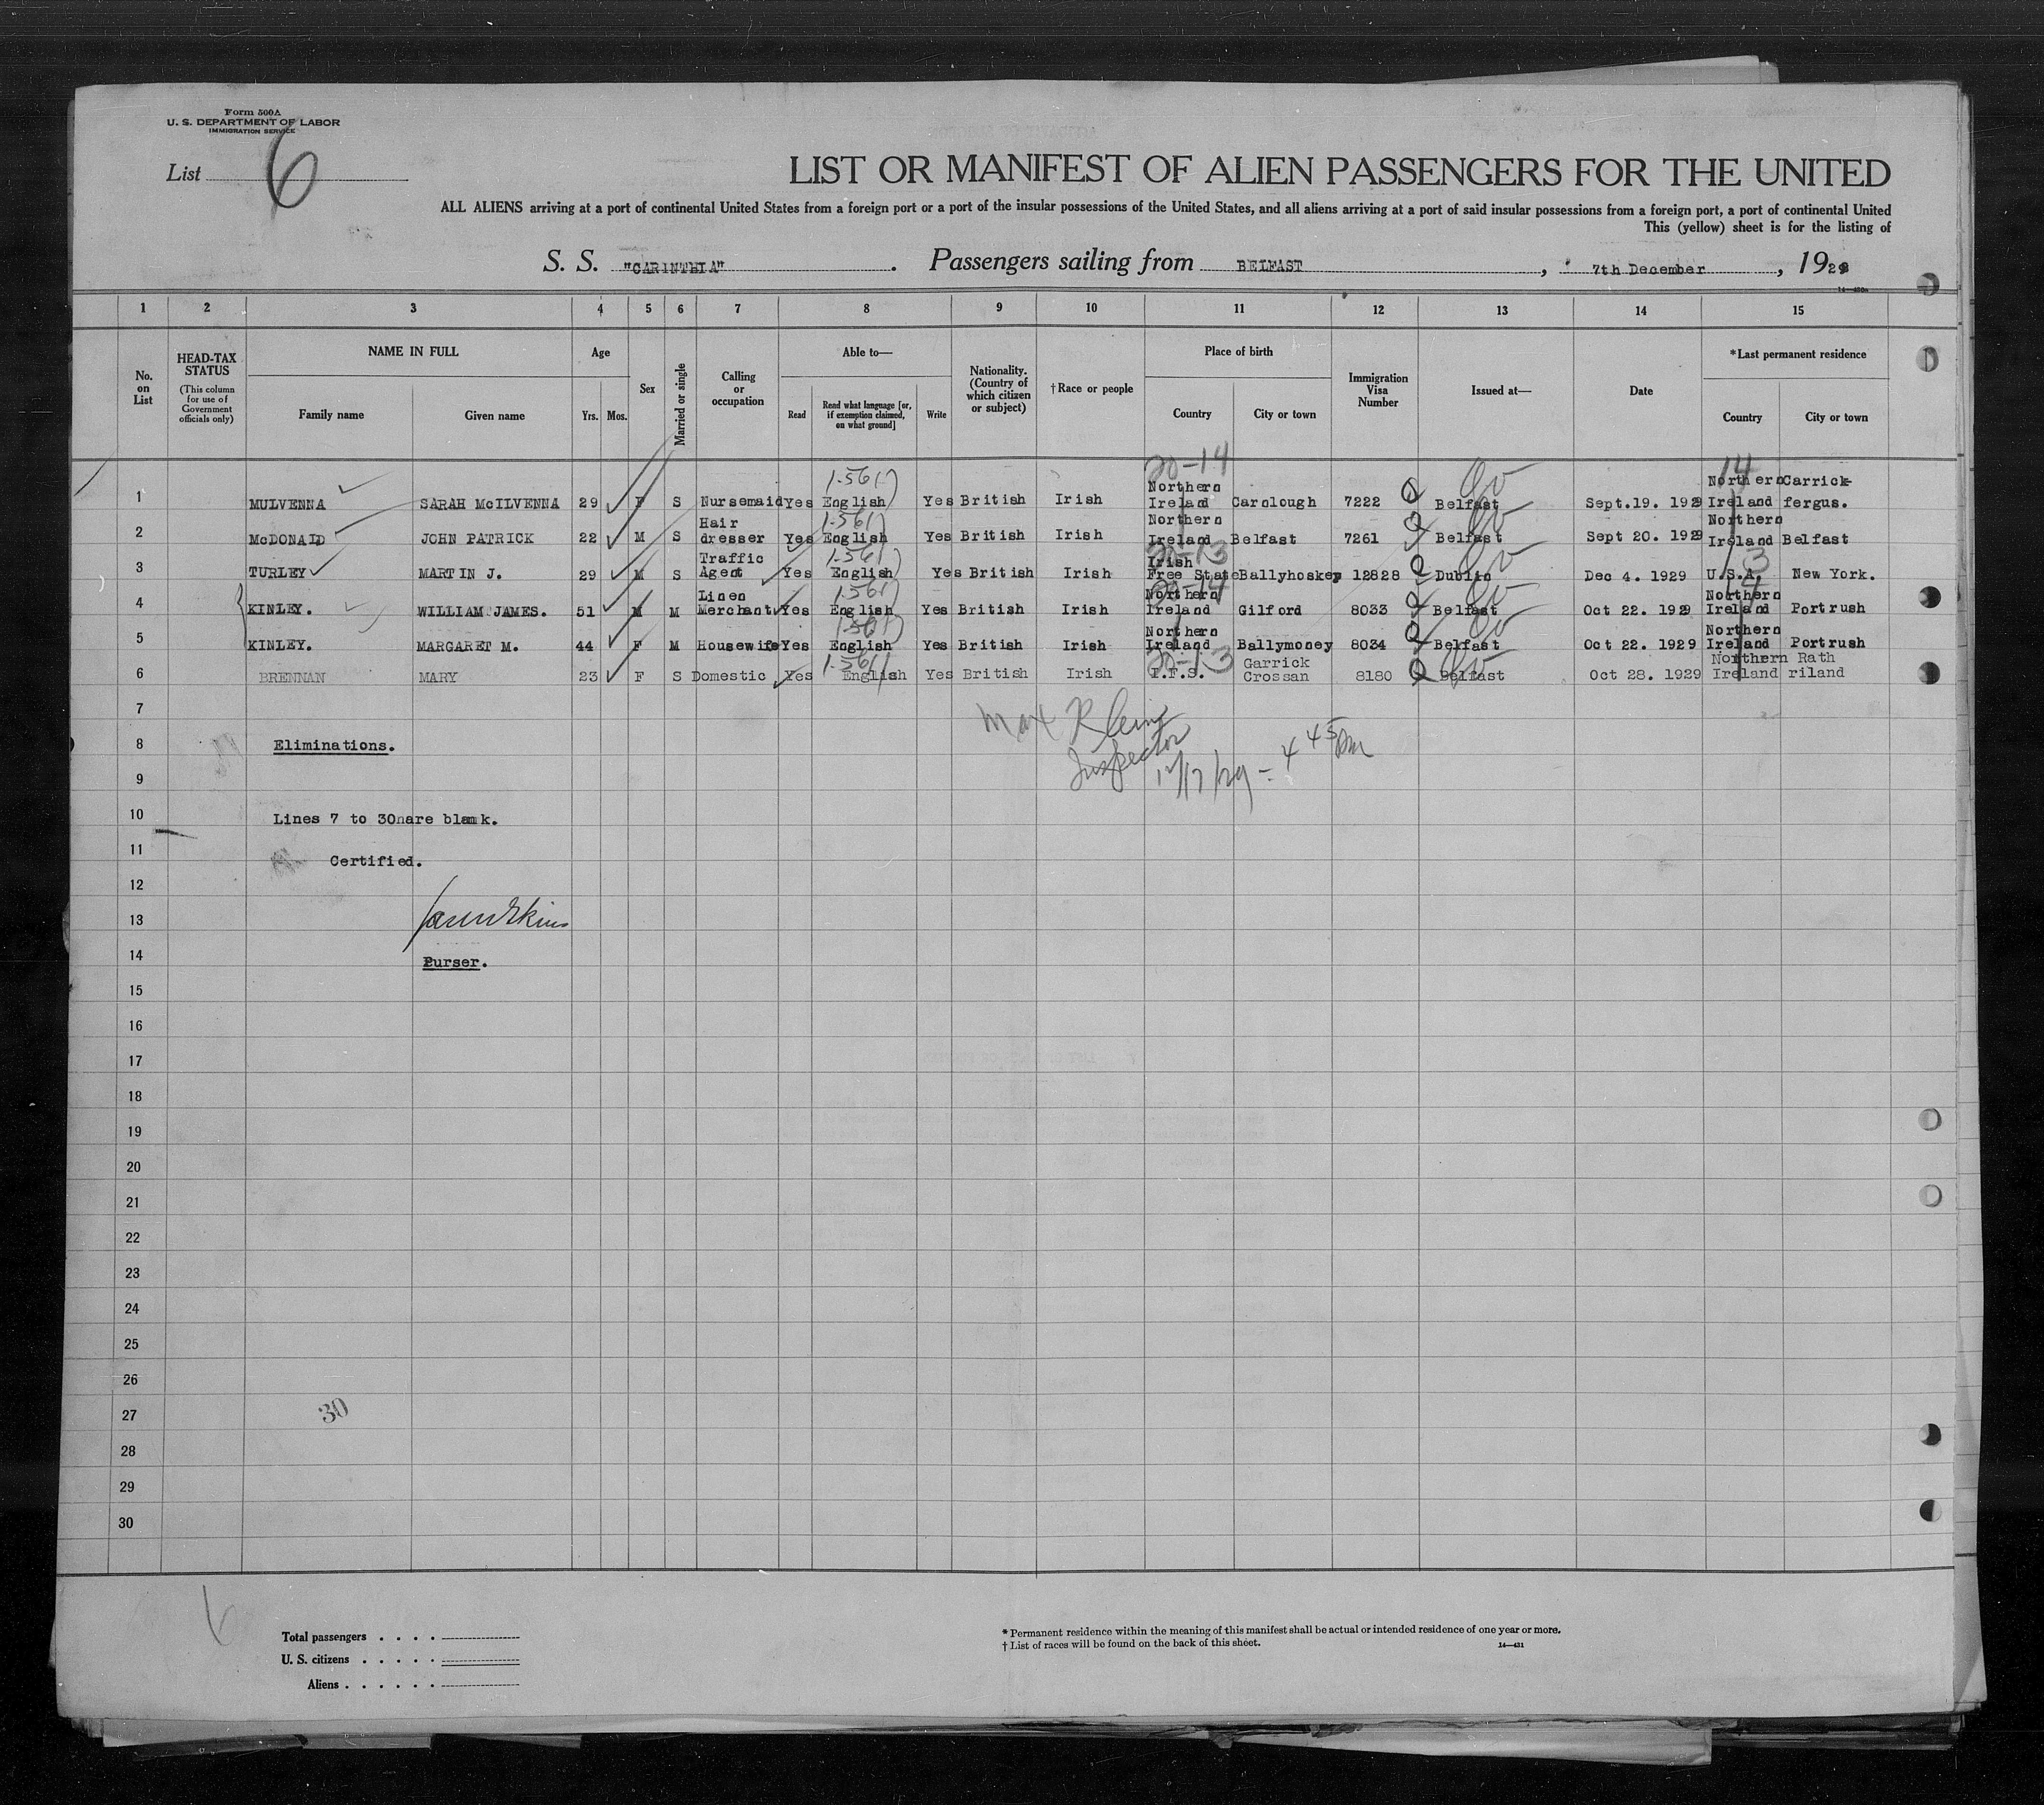 Form 500A
U. S. DEPARTMENT OF LABOR
IMMIGRATION SERVICE
List 6
LIST OR MANIFEST OF ALIEN PASSENGERS FOR THE UNITED
ALL ALIENS arriving at a port of continental United States from a foreign port or a port of the insular possessions of the United States, and all aliens arriving at a port of said insular possessions from a foreign port, a port of continental United
This (yellow) sheet is for the listing of
S. S. "CARINTHIA". Passengers sailing from BELFAST, 7th December, 1929
14-430a
1 2 3 4 5 6 7 8 9 10 11 12 13 14 15
No. on List
HEAD-TAX STATUS
(This column for use of Government officials only)
NAME IN FULL
Family name Given name
Age
Yrs. Mos.
Sex
Married or single
Calling or occupation
Able to—
Read
Read what language [or, if exemption claimed, on what ground]
Write
Nationality. (Country of which citizen or subject)
†Race or people
Place of birth
Country City or town
Immigration Visa Number
Issued at—
Date
*Last permanent residence
Country City or town
1 MULVENNA SARAH McILVENNA 29 F S Nursemaid Yes English Yes British Irish Northern Ireland Carolough 7222 Belfast Sept.19. 1929 Northern Ireland Carrick-fergus.
2 McDONALD JOHN PATRICK 22 M S Hair dresser Yes English Yes British Irish Northern Ireland Belfast 7261 Belfast Sept 20. 1929 Northern Ireland Belfast
3 TURLEY MARTIN J. 29 M S Traffic Agent Yes English Yes British Irish Irish Free State Ballyhoskey 12828 Dublin Dec 4. 1929 U.S.A. New York.
4 KINLEY. WILLIAM JAMES. 51 M M Linen Merchant Yes English Yes British Irish Northern Ireland Gilford 8033 Belfast Oct 22. 1929 Northern Ireland Portrush
5 KINLEY. MARGARET M. 44 F M Housewife Yes English Yes British Irish Northern Ireland Ballymoney 8034 Belfast Oct 22. 1929 Northern Ireland Portrush
6 BRENNAN MARY 23 F S Domestic Yes English Yes British Irish I.F.S. Garrick Crossan 8180 Belfast Oct 28. 1929 Northern Ireland Rath riland
7
Max Klein
Inspector
12/17/29 - 4 45 PM
8 Eliminations.
9
10 Lines 7 to 30nare blamk.
11 Certified.
12
13
14 Purser.
15
16
17
18
19
20
21
22
23
24
25
26
27 30
28
29
30
Total passengers . . . .
U. S. citizens . . . . .
Aliens . . . . . .
* Permanent residence within the meaning of this manifest shall be actual or intended residence of one year or more.
† List of races will be found on the back of this sheet.
14—431